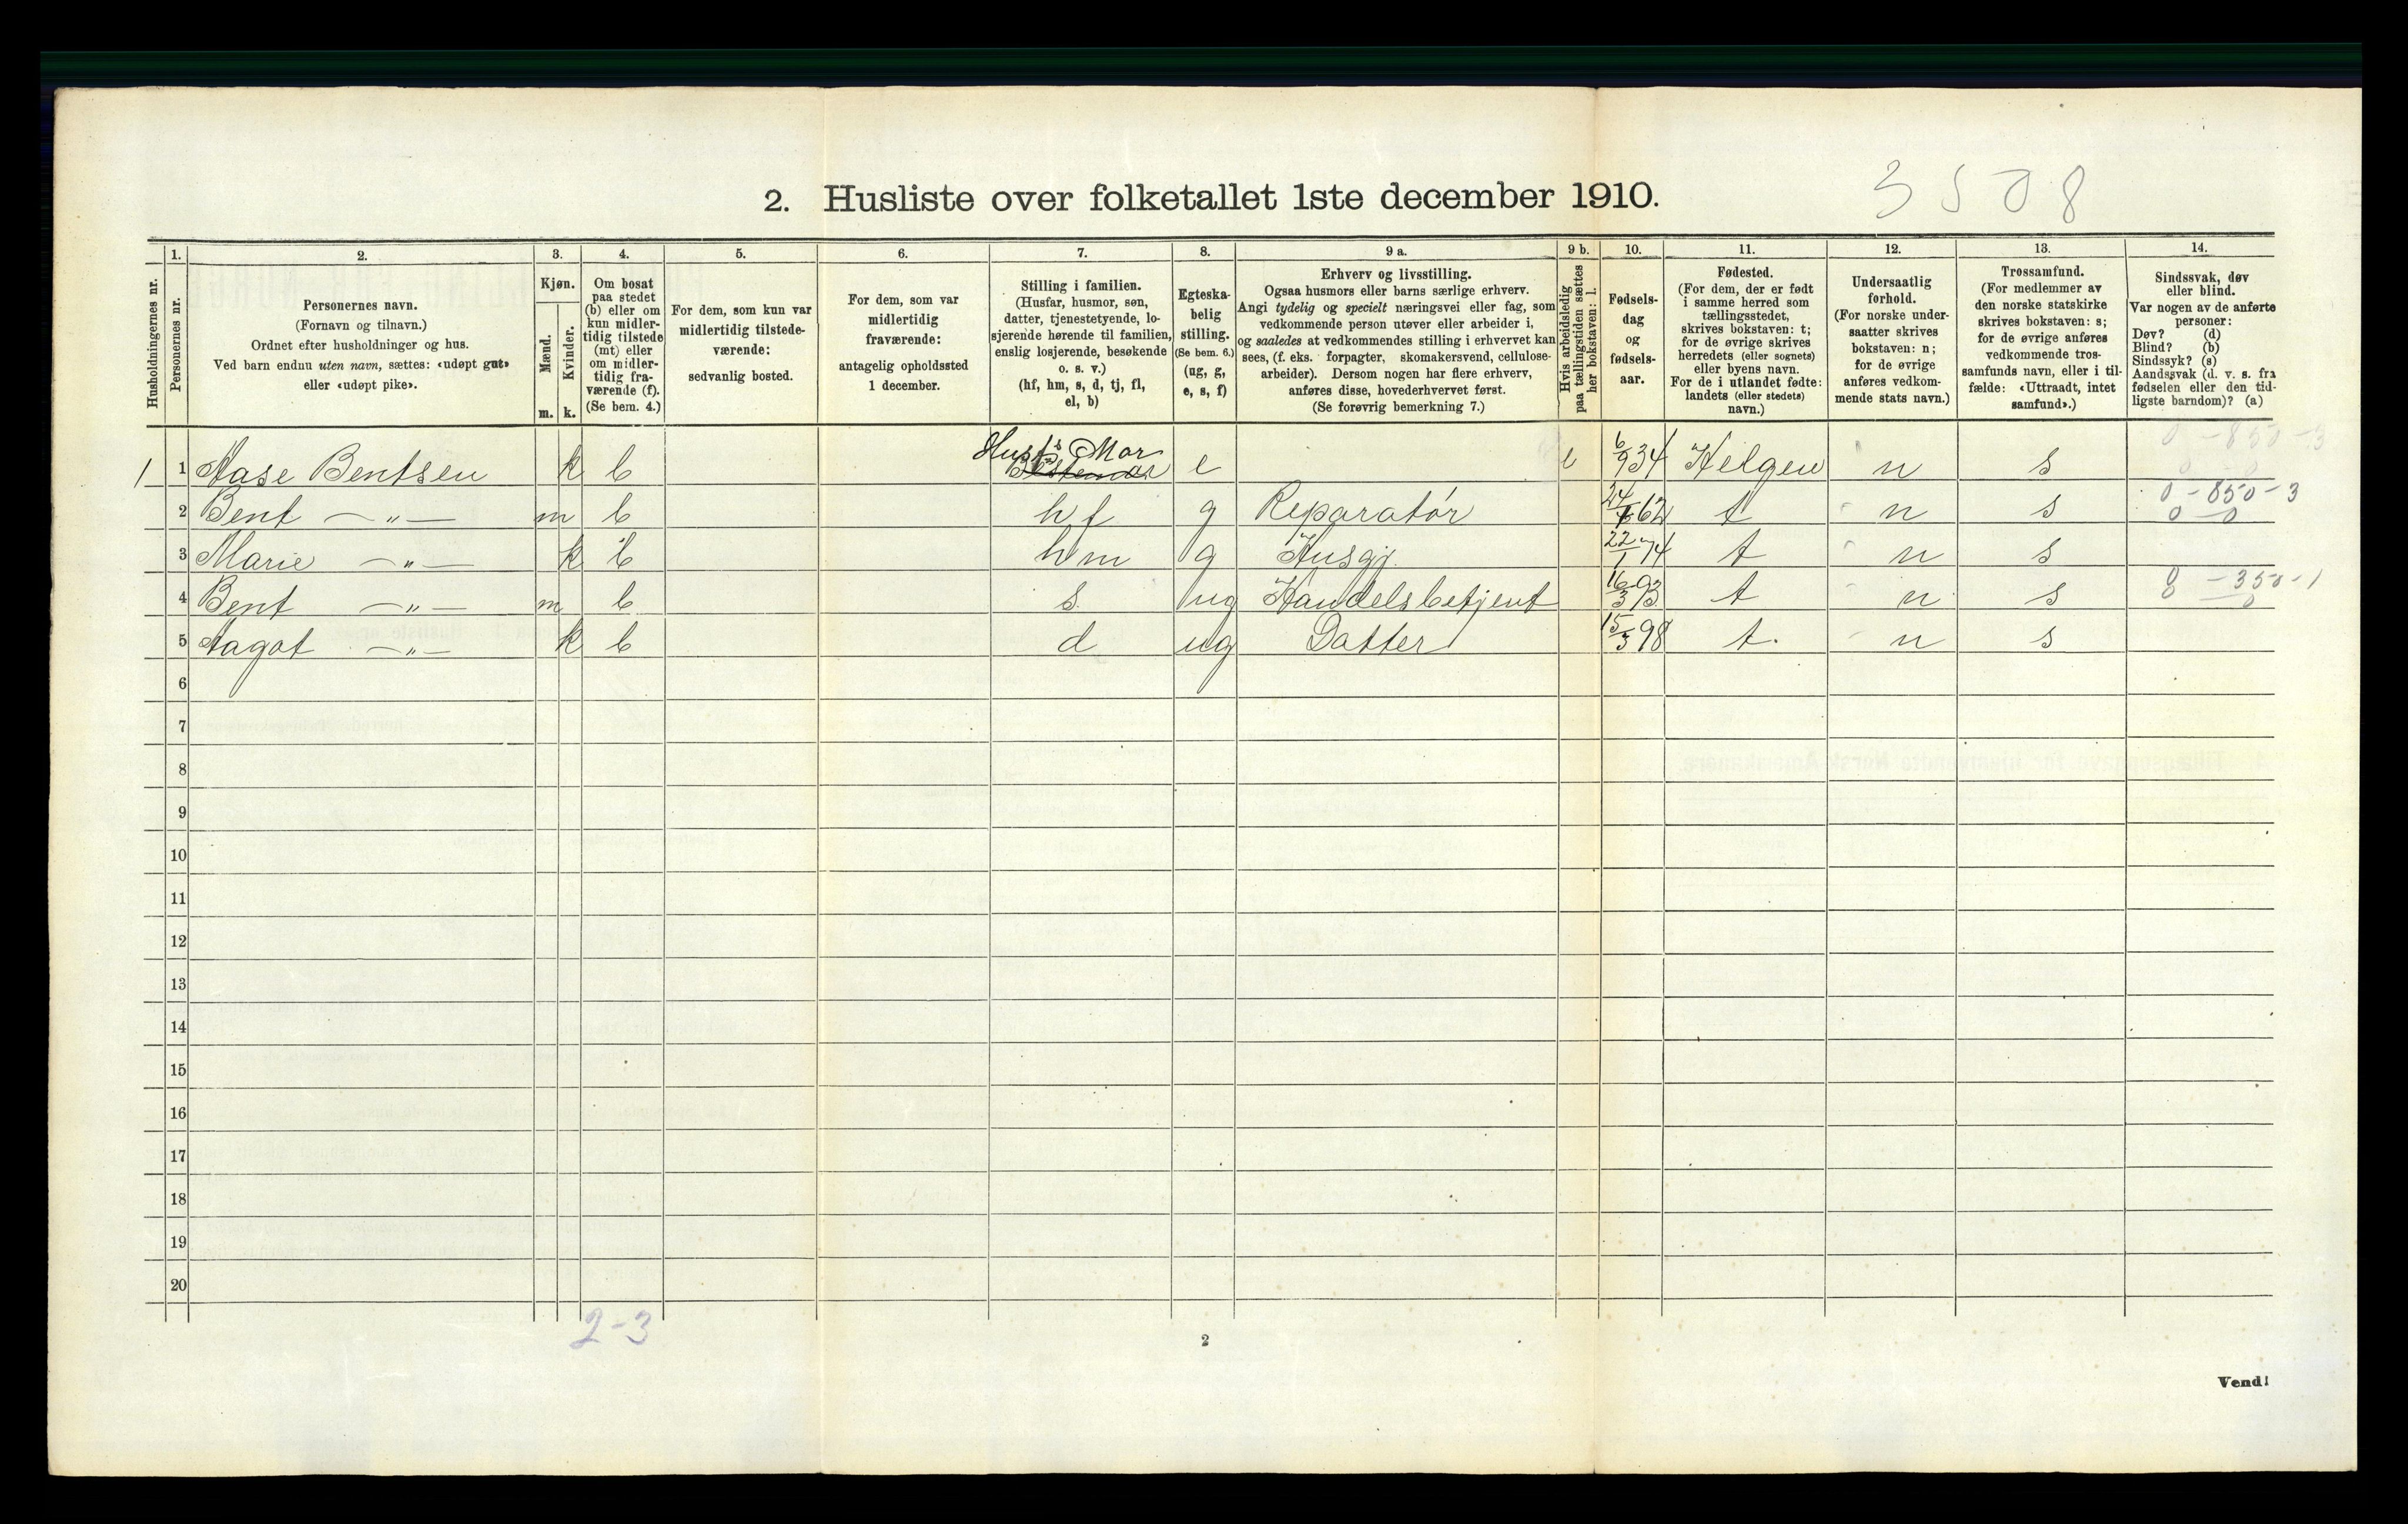 2. Husliste over folketallet 1ste december 1910.
3508
Husholdningernes nr.
1.
Personernes nr.
2.
Personernes navn.
(Fornavn og tilnavn.)
Ordnet efter husholdninger og hus.
Ved barn endnu uten navn, sættes: «udøpt gut»
eller «udøpt pike».
3.
Kjøn.
Mænd.
m.
Kvinder.
k.
4.
Om bosat
paa stedet
(b) eller om
kun midler-
tidig tilstede
(mt) eller
om midler-
tidig fra-
værende (f).
(Se bem. 4.)
5.
For dem, som kun var
midlertidig tilstede-
værende:
sedvanlig bosted.
6.
For dem, som var
midlertidig
fraværende:
antagelig opholdssted
1 december.
7.
Stilling i familien.
(Husfar, husmor, søn,
datter, tjenestetyende, lo-
sjerende hørende til familien,
enslig losjerende, besøkende
o. s. v.)
(hf, hm, s, d, tj, fl,
el, b)
8.
Egteska-
belig
stilling.
(Se bem. 6.)
(ug, g,
e, s, f)
9 a.
Erhverv og livsstilling.
Ogsaa husmors eller barns særlige erhverv.
Angi tydelig og specielt næringsvei eller fag, som
vedkommende person utøver eller arbeider i,
og saaledes at vedkommendes stilling i erhvervet kan
sees, (f. eks. forpagter, skomakersvend, cellulose-
arbeider). Dersom nogen har flere erhverv,
anføres disse, hovederhvervet først.
(Se forøvrig bemerkning 7.)
9 b.
Hvis arbeidsledig
paa tællingstiden sættes
her bokstaven: l.
10.
Fødsels-
dag
og
fødsels-
aar.
11.
Fødested.
(For dem, der er født
i samme herred som
tællingsstedet,
skrives bokstaven: t;
for de øvrige skrives
herredets (eller sognets)
eller byens navn.
For de i utlandet fødte:
landets (eller stedets)
navn.)
12.
Undersaatlig
forhold.
(For norske under-
saatter skrives
bokstaven: n;
for de øvrige
anføres vedkom-
mende stats navn.)
13.
Trossamfund.
(For medlemmer av
den norske statskirke
skrives bokstaven: s;
for de øvrige anføres
vedkommende tros-
samfunds navn, eller i til-
fælde: «Uttraadt, intet
samfund».)
14.
Sindssvak, døv
eller blind.
Var nogen av de anførte
personer:
Døv? (d)
Blind? (b)
Sindssyk? (s)
Aandssvak (d. v. s. fra
fødselen eller den tid-
ligste barndom)? (a)
0 - 850 - 3
0 - 0
1 1 Aase Bentsen k b Husf's Mor Bestemor e l 6/9 34 Helgen n s
0 - 850 - 3
0 - 0
2 Bent — " — m b hf g Reparatør 24/ 62 t n s
3 Marie — " — k b hm g Husgj. 22/1 74 t n s
4 Bent — " — m b s. ug Handelsbetjent 16/3 93 t n s 0 - 350 - 1
5 Aagot — " — k b d ug Datter 15/3 98 t. n s
6
7
8
9
10
11
12
13
14
15
16
17
18
19
20
2-3
2
Vend!